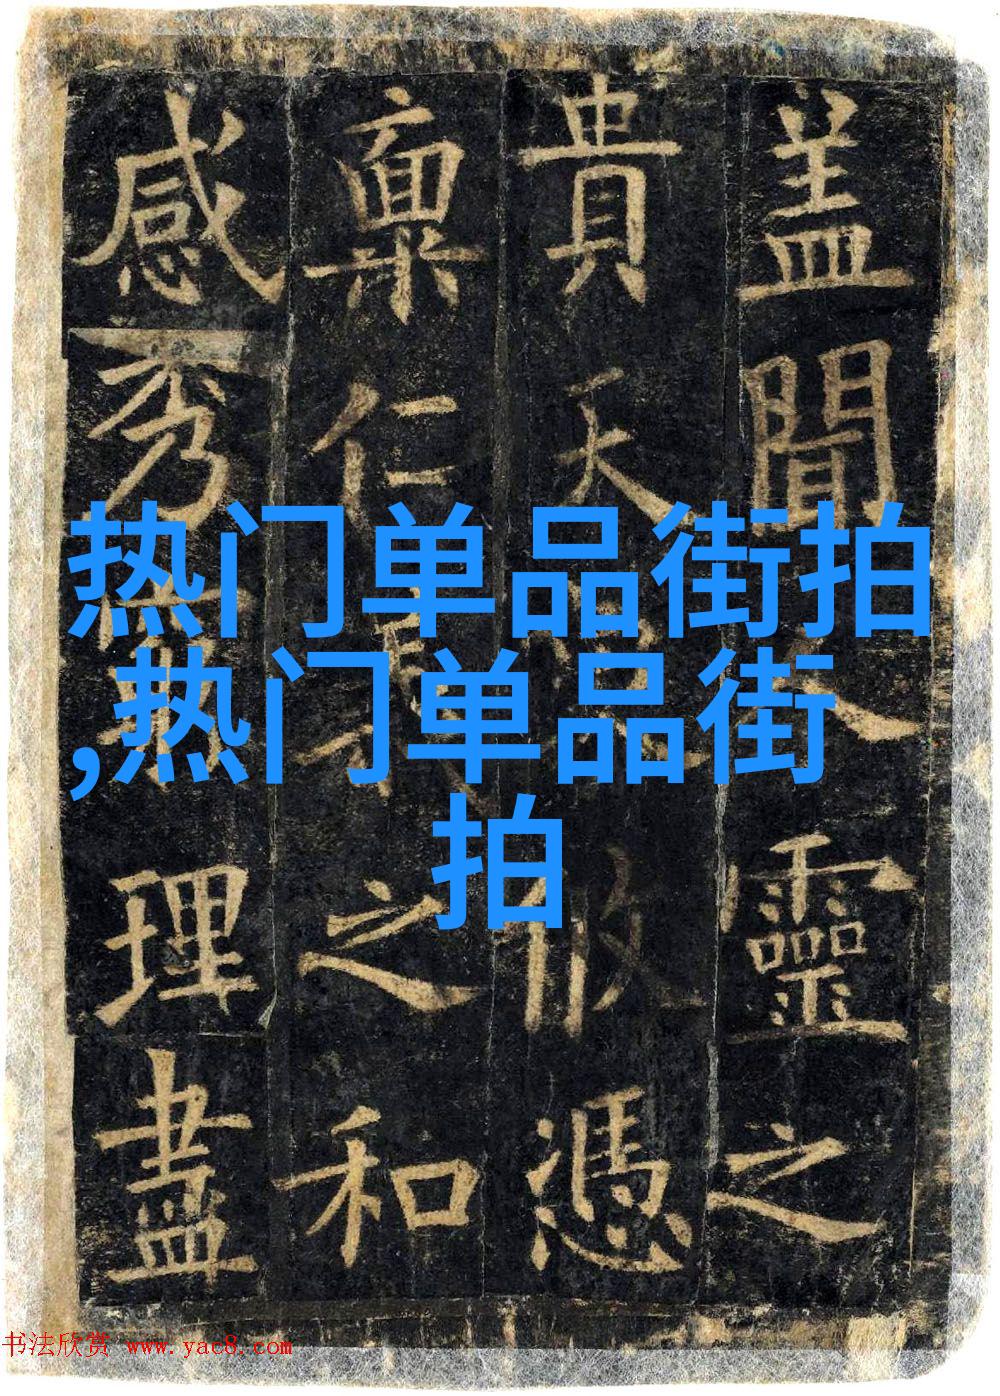 盖聞靈之
貴天攸憑
稟仁之和
感秀理盡
热门单品街拍
,热门单品街
拍
书法欣赏 www.yac8.com